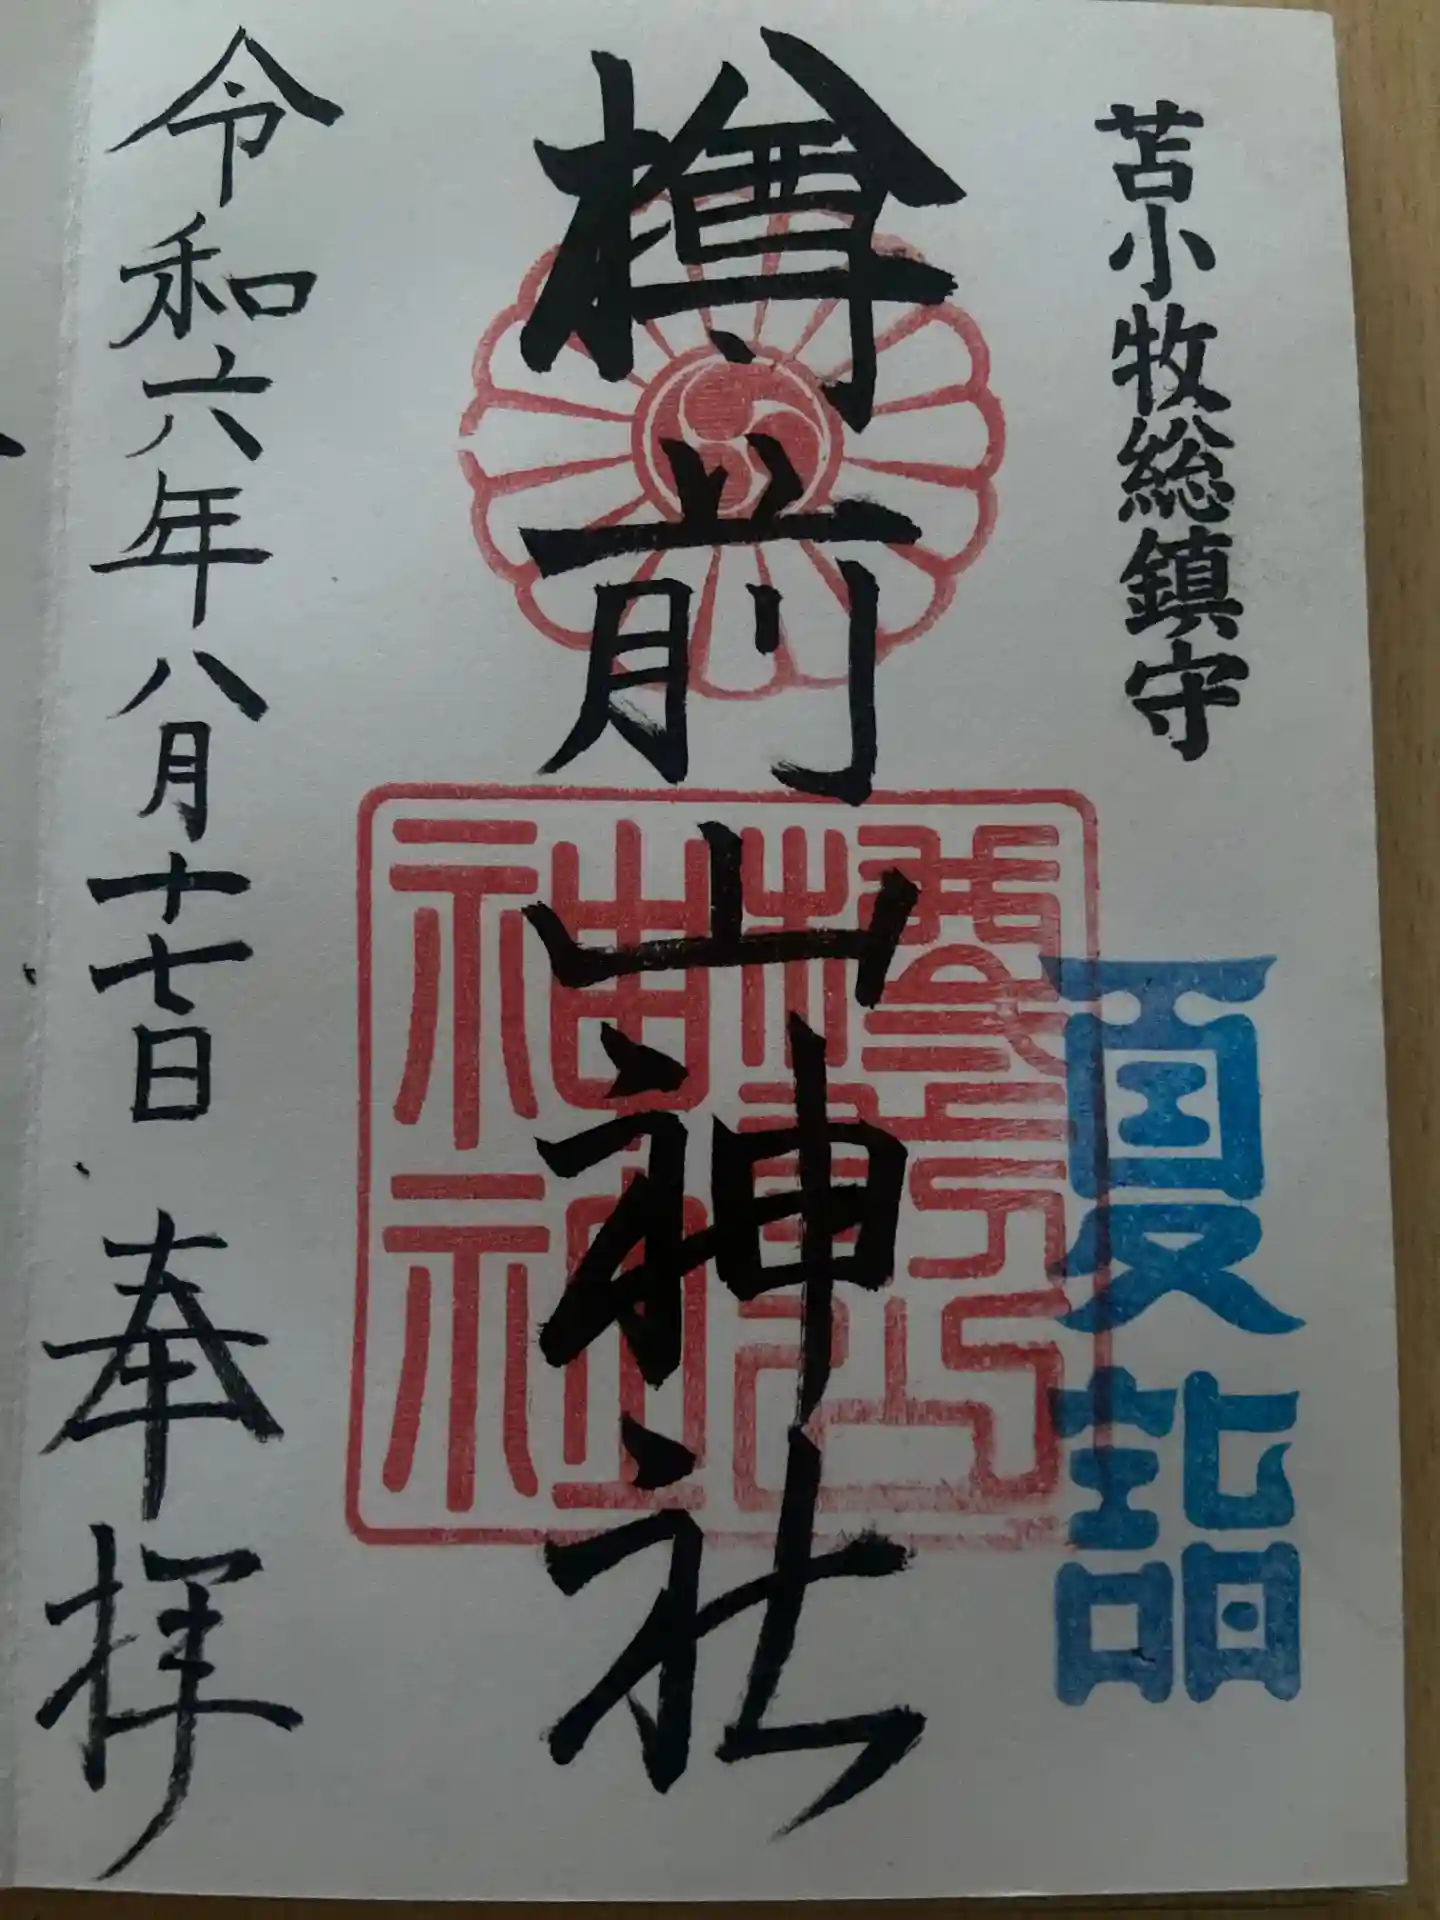 苫小牧総鎮守
夏詣
樽前山神社
樽前山神社
令和六年八月十七日 奉拝